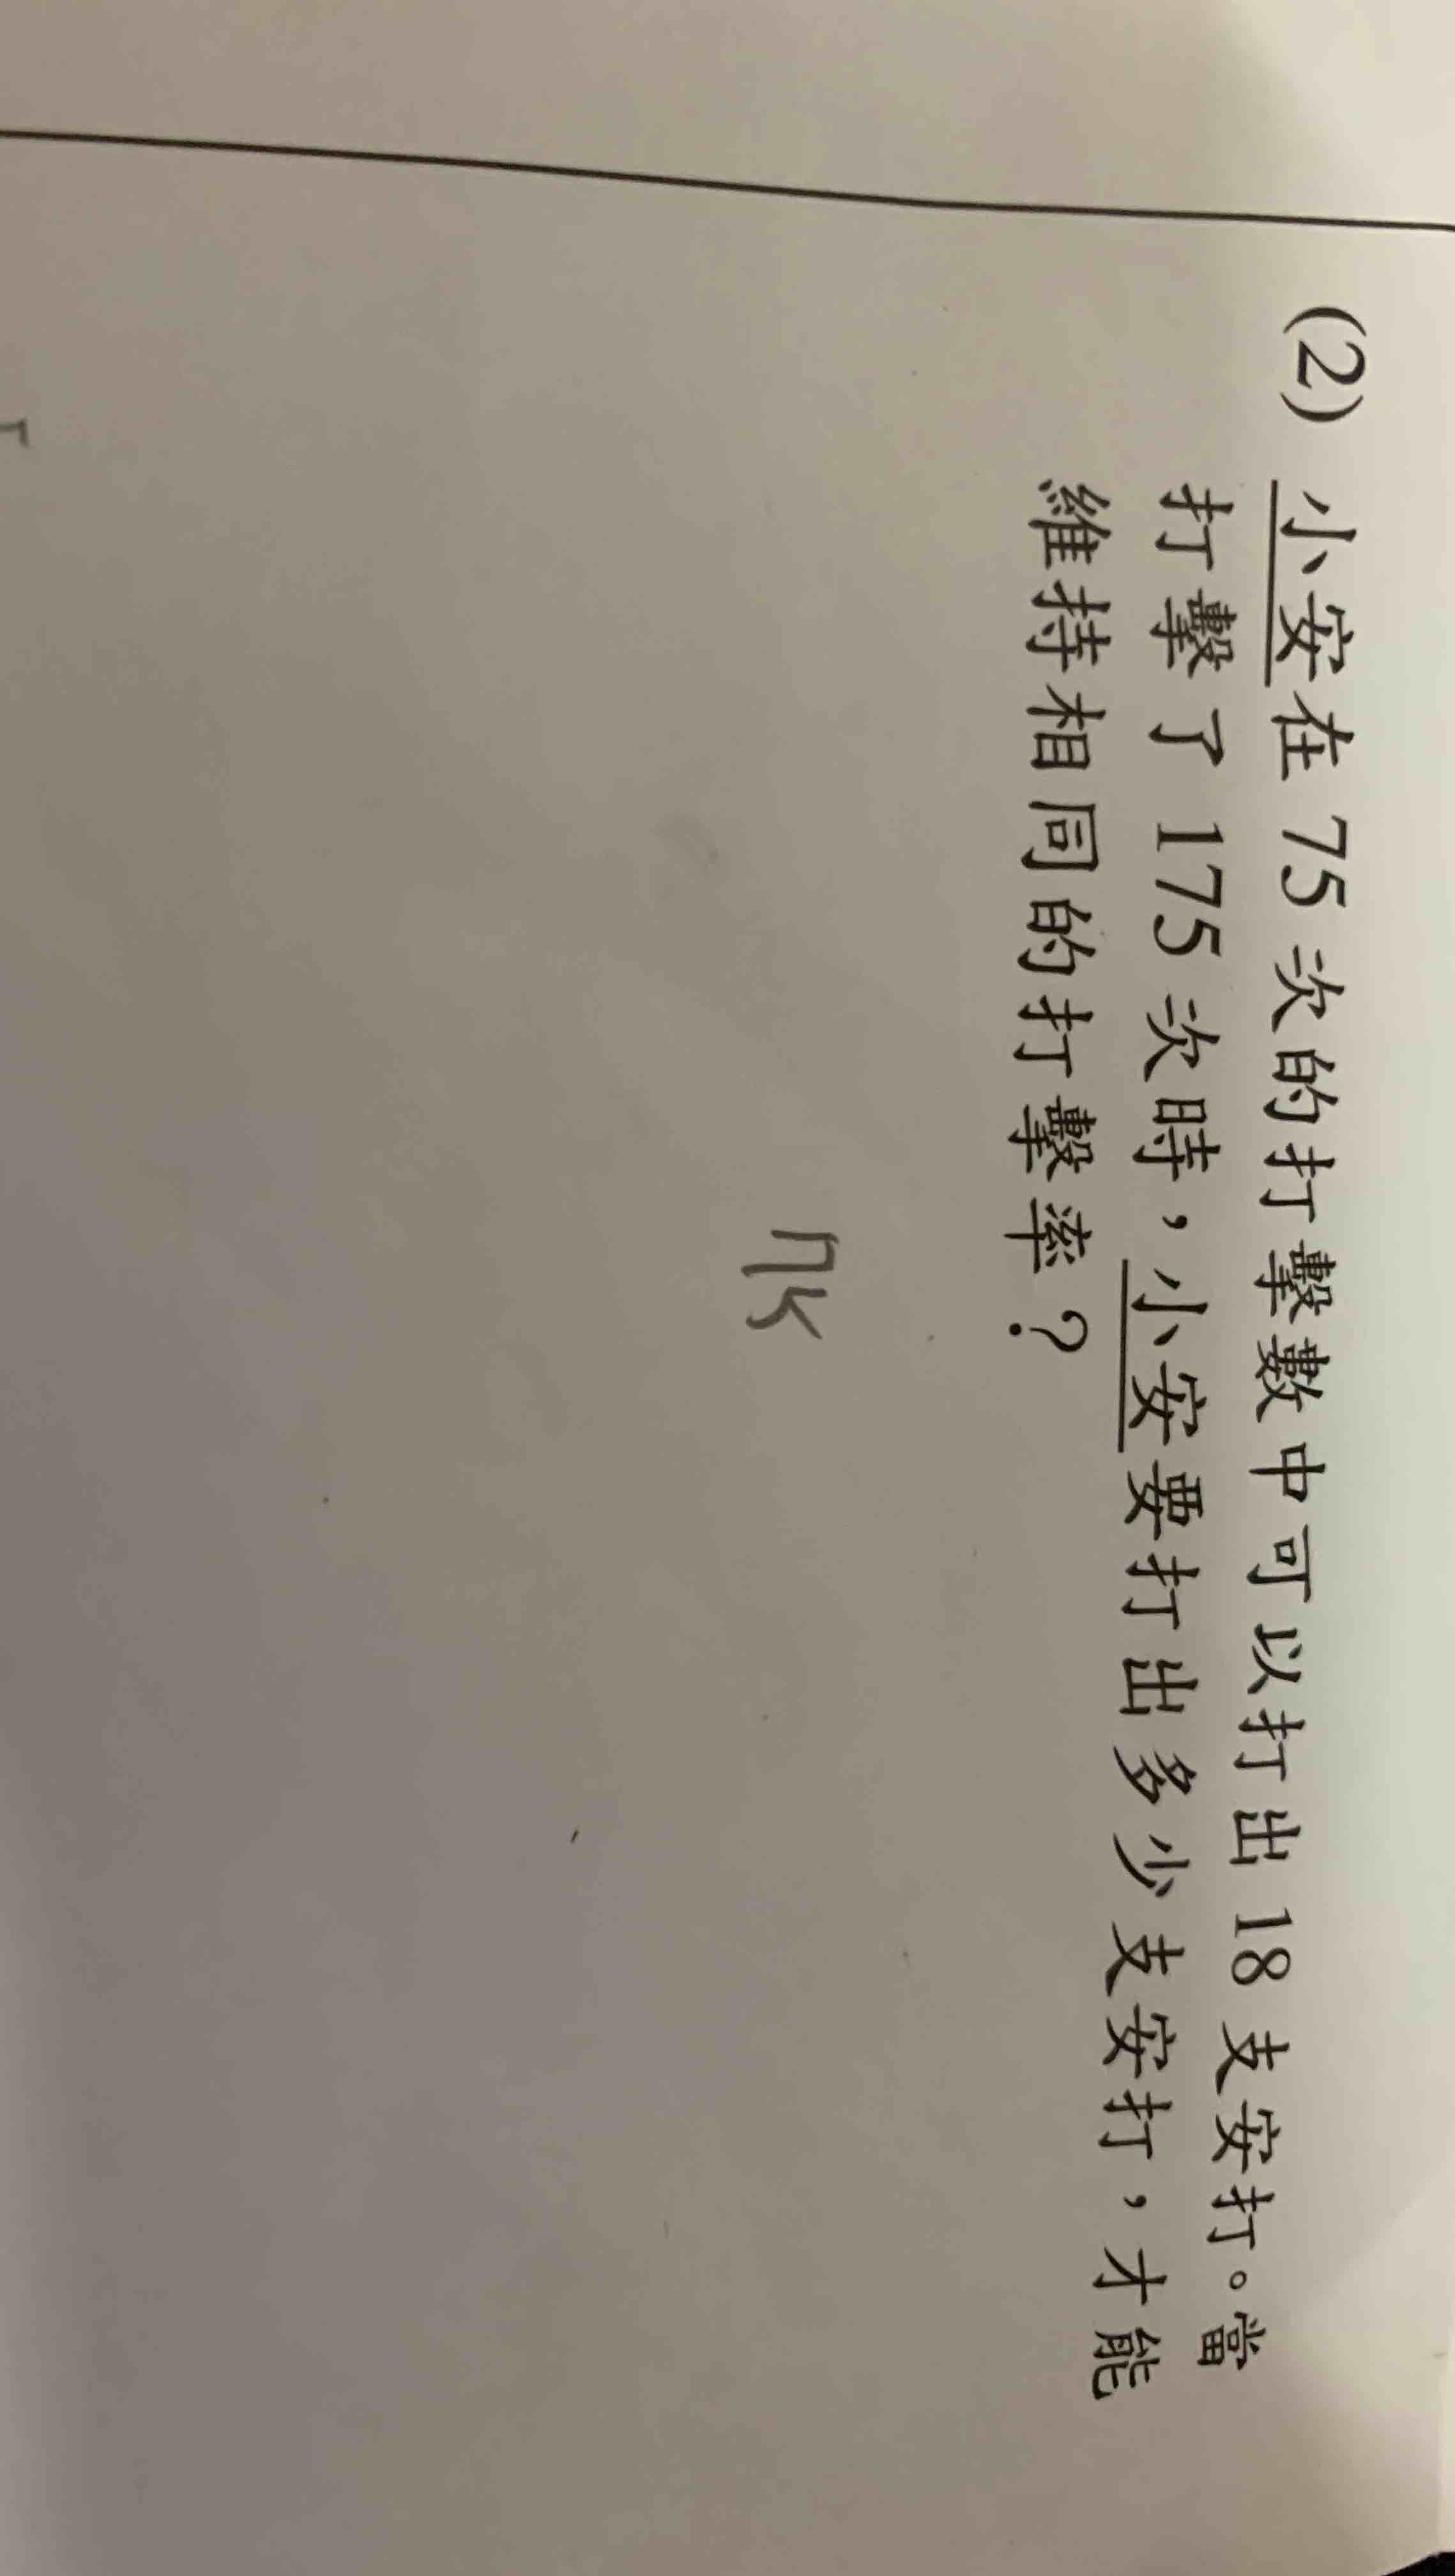 (2) 小安在 75 次的打擊數中可以打出 18 支安打。當
打擊了 175 次時，小安要打出多少支安打，才能
維持相同的打擊率？